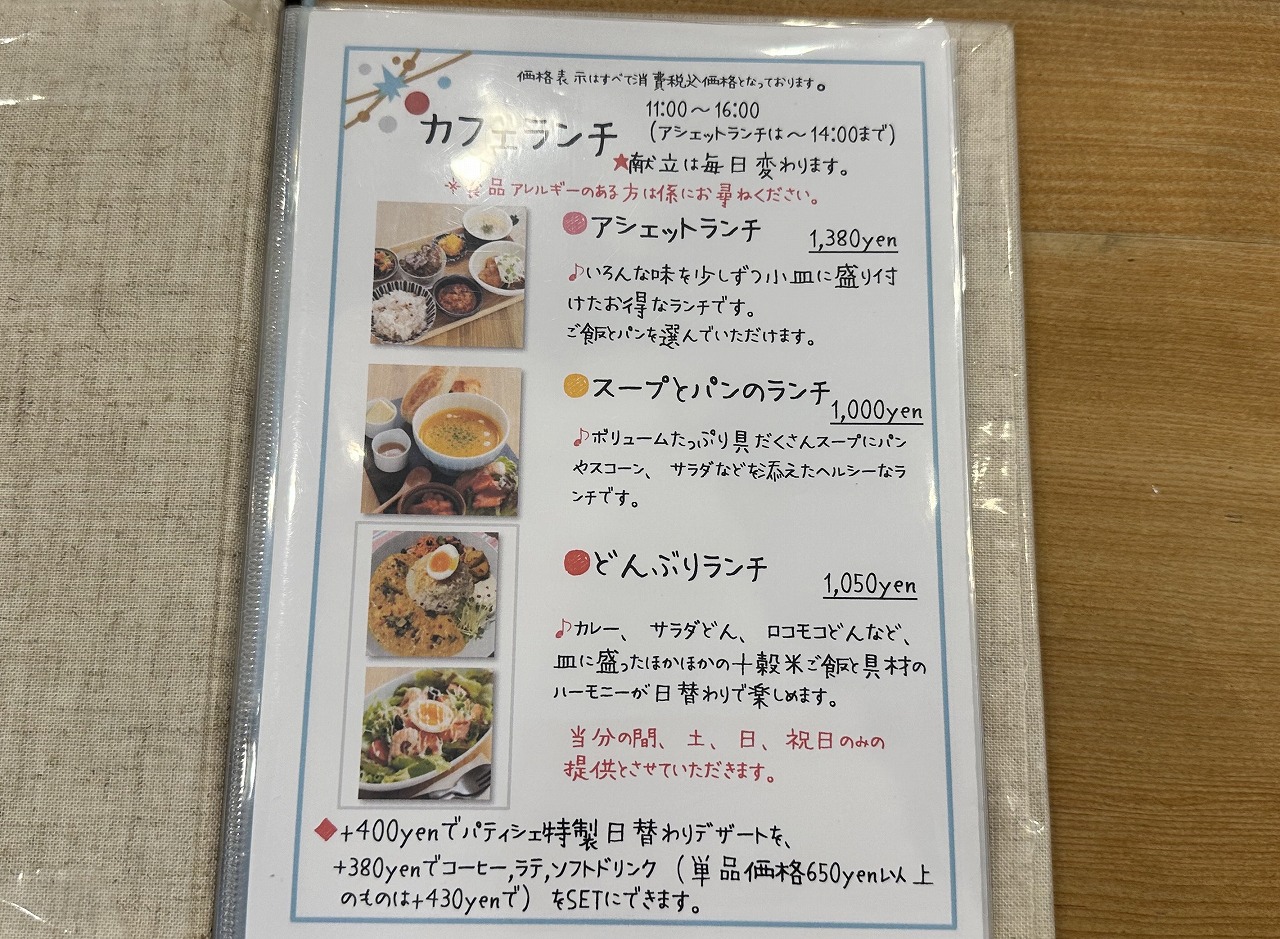 価格表示はすべて消費税込価格となっております。
11:00～16:00
カフェランチ
(アシェットランチは～14:00まで)
★献立は毎日変わります。
品アレルギーのある方は係にお尋ねください。
アシェットランチ
1,380yen
♪いろんな味を少しずつ小皿に盛り付
けたお得なランチです。
ご飯とパンを選んでいただけます。
スープとパンのランチ
1,000yen
♪ボリュームたっぷり具だくさんスープにパン
やスコーン、サラダなどを添えたヘルシーなラ
ンチです。
どんぶりランチ
1,050yen
♪カレー、サラダどん、ロコモコどんなど、
皿に盛ったほかほかの十穀米ご飯と具材の
ハーモニーが日替わりで楽しめます。
当分の間、土、日、祝日のみの
提供とさせていただきます。
◆+400yenでパティシェ特製日替わりデザートを、
+380yenでコーヒー,ラテ,ソフトドリンク(単品価格650yen以上
のものは+430yenで)をSETにできます。